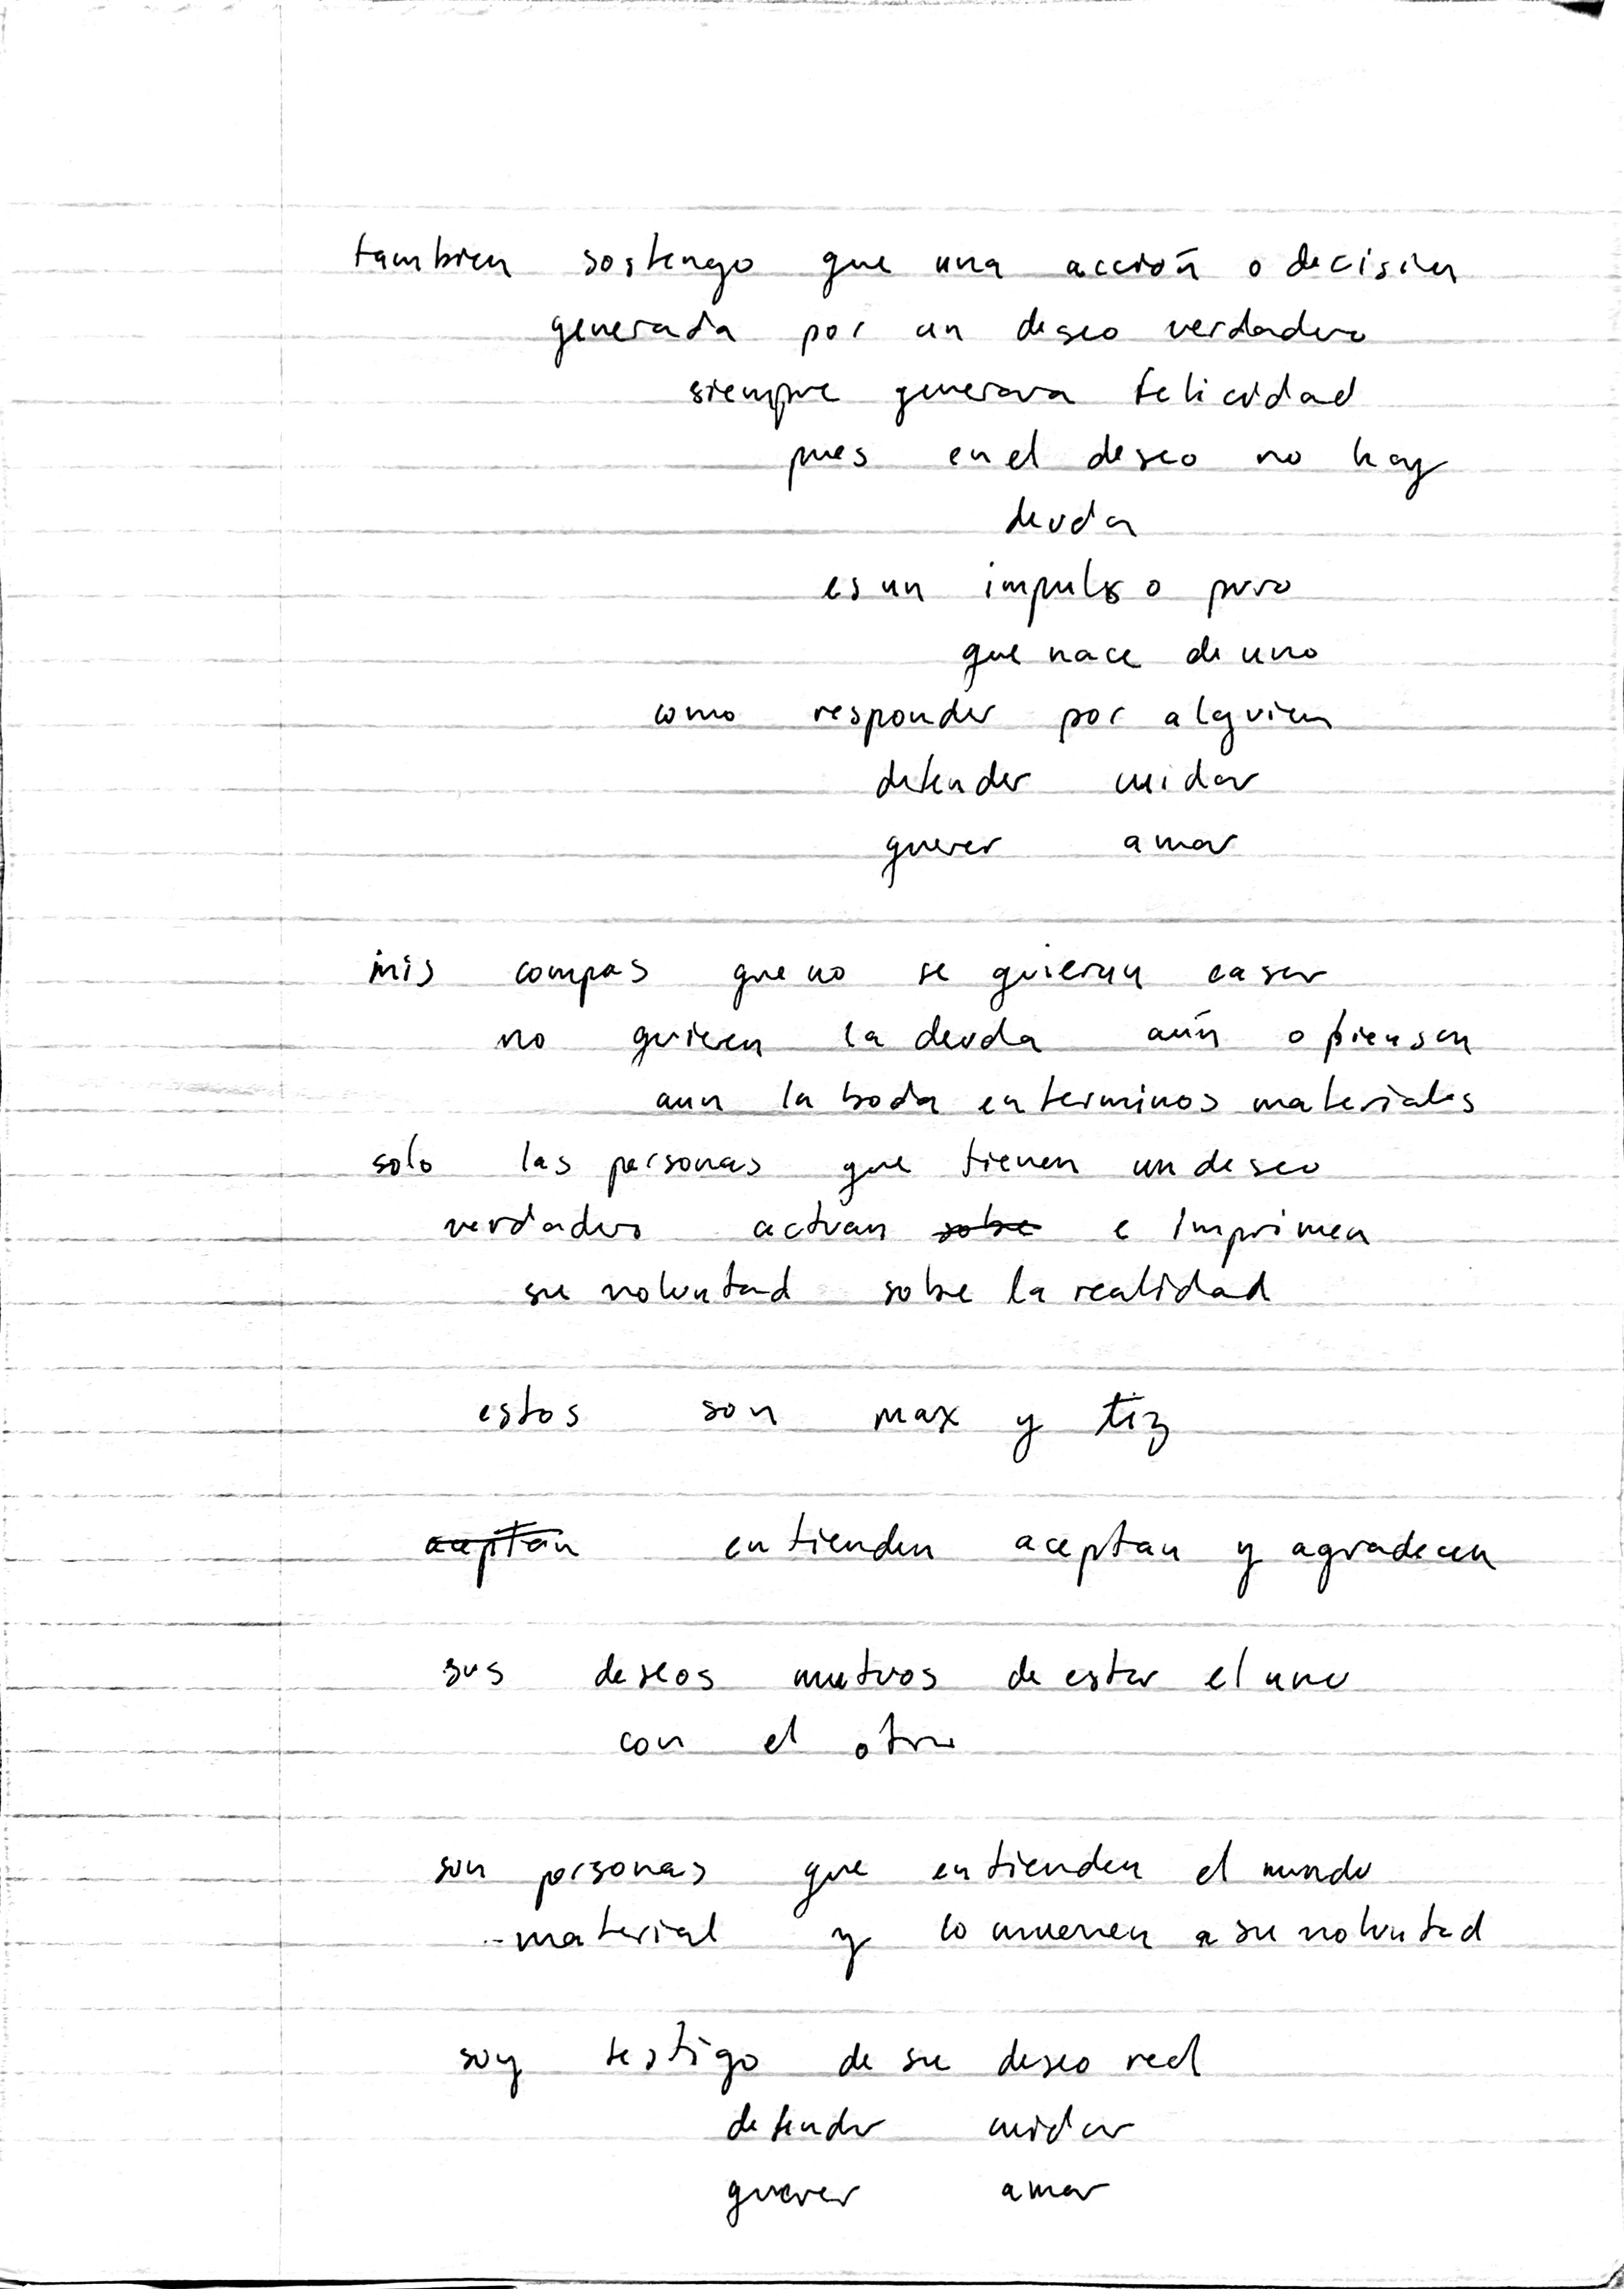 tambien sostengo que una acción o decisión
generada por un deseo verdadero
siempre generara felicidad
pues en el deseo no hay
deuda
es un impulso puro
que nace de uno
como responder por alguien
defender cuidar
querer amar
mis compas que no se quieren casar
no quieren la deuda aún o piensan
aun la boda en terminos materiales
solo las personas que tienen un deseo
verdadero actuan sobre e imprimen
su voluntad sobre la realidad
estos son max y tiz
aceptan entienden aceptan y agradecen
sus deseos mutuos de estar el uno
con el otro
son personas que entienden el mundo
material y lo mueven a su voluntad
soy testigo de su deseo real
defender cuidar
querer amar